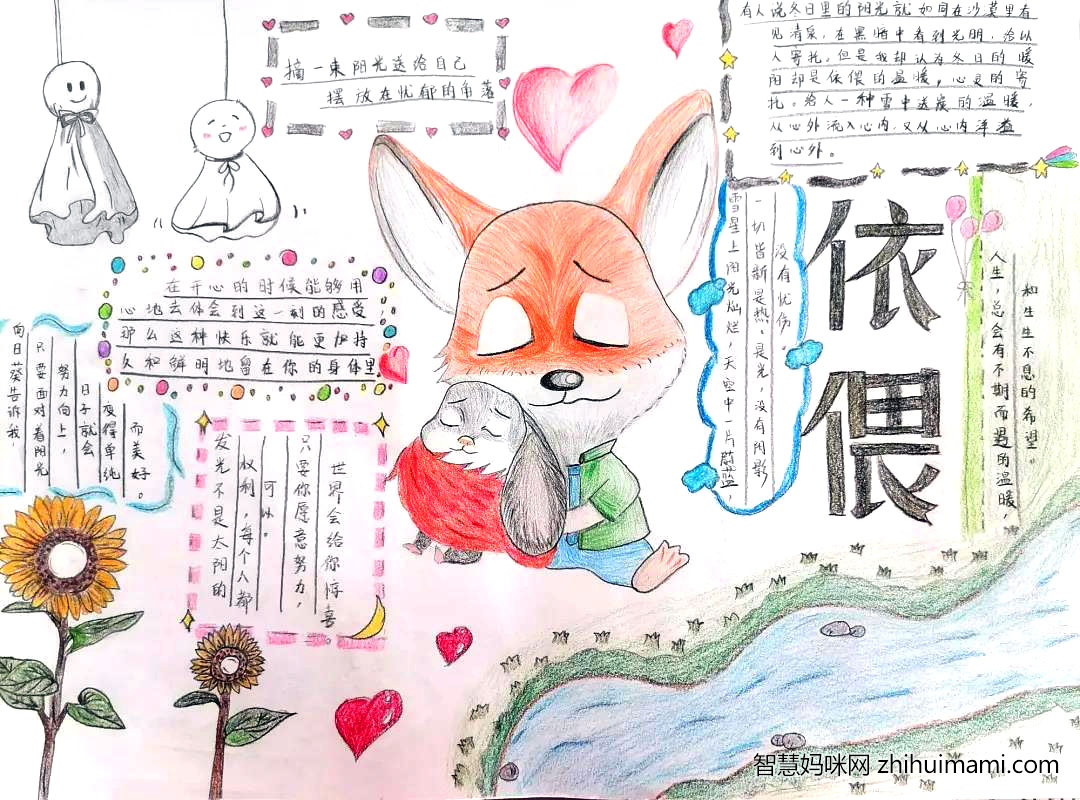 摘一束阳光送给自己
摆放在忧郁的角落
有人说冬日里的阳光就如同在沙莫里看
见清泉，在黑暗中看到光明，给以
人寄托，但是我却认为冬日的暖
阳却是依偎的温暖，心灵的寄
托。给人一种雪中送炭的温暖，
从心外流入心内，又从心内洋溢
到心外。
依偎
在开心的时候能够用
心地去体会到这一刻的感受，
那么这种快乐就能更加持
久和鲜明地留在你的身体里
没有忧伤。
一切皆新是热，是光，没有阴影
雪星上阳光灿烂，天空中一片蔚蓝，
和生生不息的希望。
人生，总会有不期而遇的温暖，
向日葵告诉我，
只要面对着阳光
努力向上，
日子就会
变得单纯
而美好。
世界会给你惊喜
只要你愿意努力，
可以。
权利，每个人都
发光不是太阳的
智慧妈咪网 zhihuimami.com